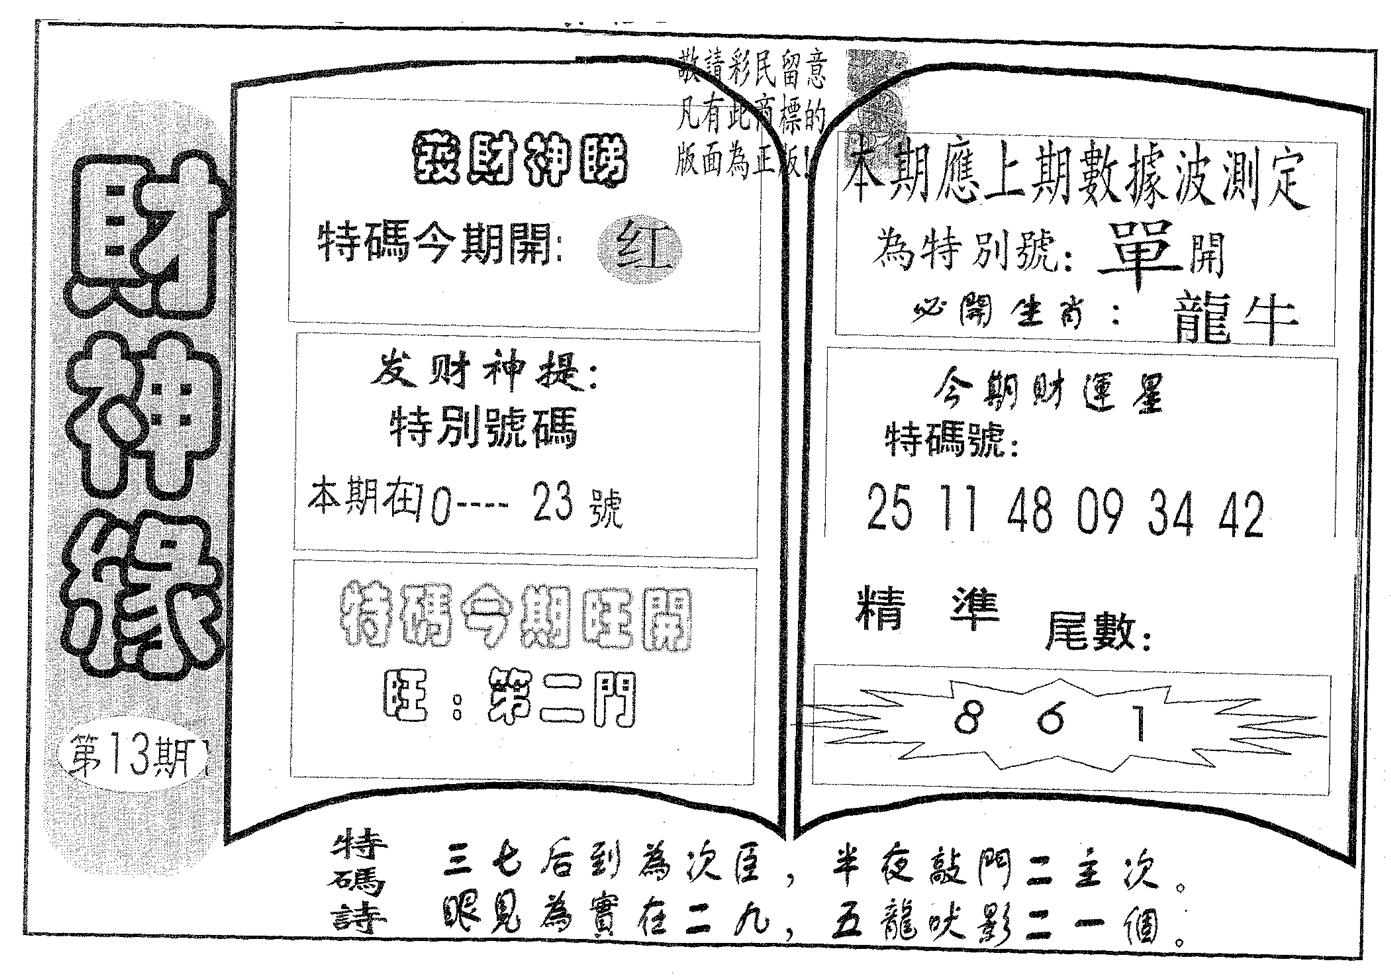 財神緣
第13期
敬請彩民留意
凡有此商標的
版面為正版!
發財神睇
特碼今期開:
红
发财神提:
特別號碼
本期在10---- 23 號
特碼今期旺開
旺:第二門
本期應上期數據波測定
為特別號:單開
必開生肖: 龍牛
今期財運星
特碼號:
25 11 48 09 34 42
精 準 尾數:
8 6 1
特碼詩
三七后到為次臣,半夜敲門二主次。
眼見為實在二九,五龍吠影二一個。